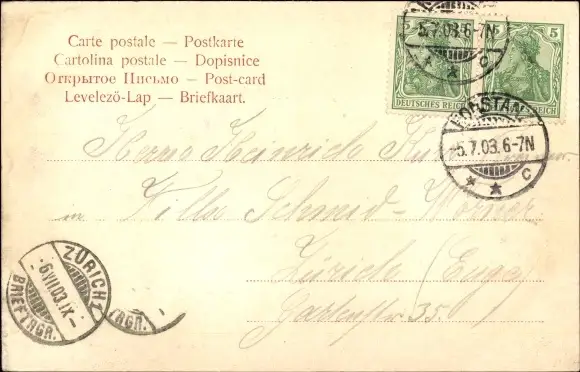 Carte postale — Postkarte
Cartolina postale — Dopisnice
Открытое Письмо — Post-card
Levelezö-Lap — Briefkaart.
5 5
DEUTSCHES REICH REICH
5.7.03.6-7N
c
KONSTANZ
5.7.03.6-7N
c
Herrn Heinrich
in Villa Schmid-
Zürich (Enge)
Gartenstr 35.
ZÜRICH 2
-6.VII.03.IX-
BRIEFTRGR.
TRGR.